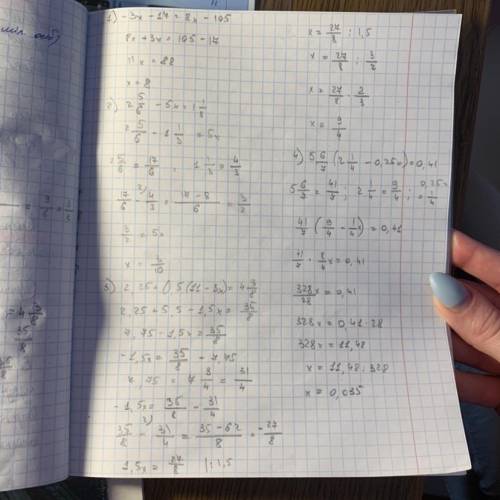 1) -3x - 17 = 8x - 105
8x + 3x = 105 - 17
11x = 88
x = 8
2) 2 5/6 - 5x = 1 1/3
2 5/6 - 1 1/3 = 5x
2 5/6 = 17/6 , 1 1/3 = 4/3
17/6 - 4/3 = (17 - 8)/6 = 3/2
3/2 = 5x
x = 3/10
3) 2,25 + 0,5(11 - 3x) = 4 3/8
2,25 + 5,5 - 1,5x = 35/8
7,75 - 1,5x = 35/8
-1,5x = 35/8 - 7,75
7,75 = 7 3/4 = 31/4
-1,5x = 35/8 - 31/4
35/8 - 31/4 = (35 - 62)/8 = -27/8
1,5x = 27/8 |: 1,5
x = 27/8 : 1,5
x = 27/8 : 3/2
x = 27/8 · 2/3
x = 9/4
4) 5 6/7 (2 1/4 - 0,25x) = 0,41
5 6/7 = 41/7 ; 2 1/4 = 9/4 ; 0,25x = 1/4
41/7 (9/4 - 1/4 x) = 0,41
41/7 · 8/4 x = 0,41
328/28 x = 0,41
328x = 0,41 · 28
328x = 11,48
x = 11,48 : 328
x = 0,035